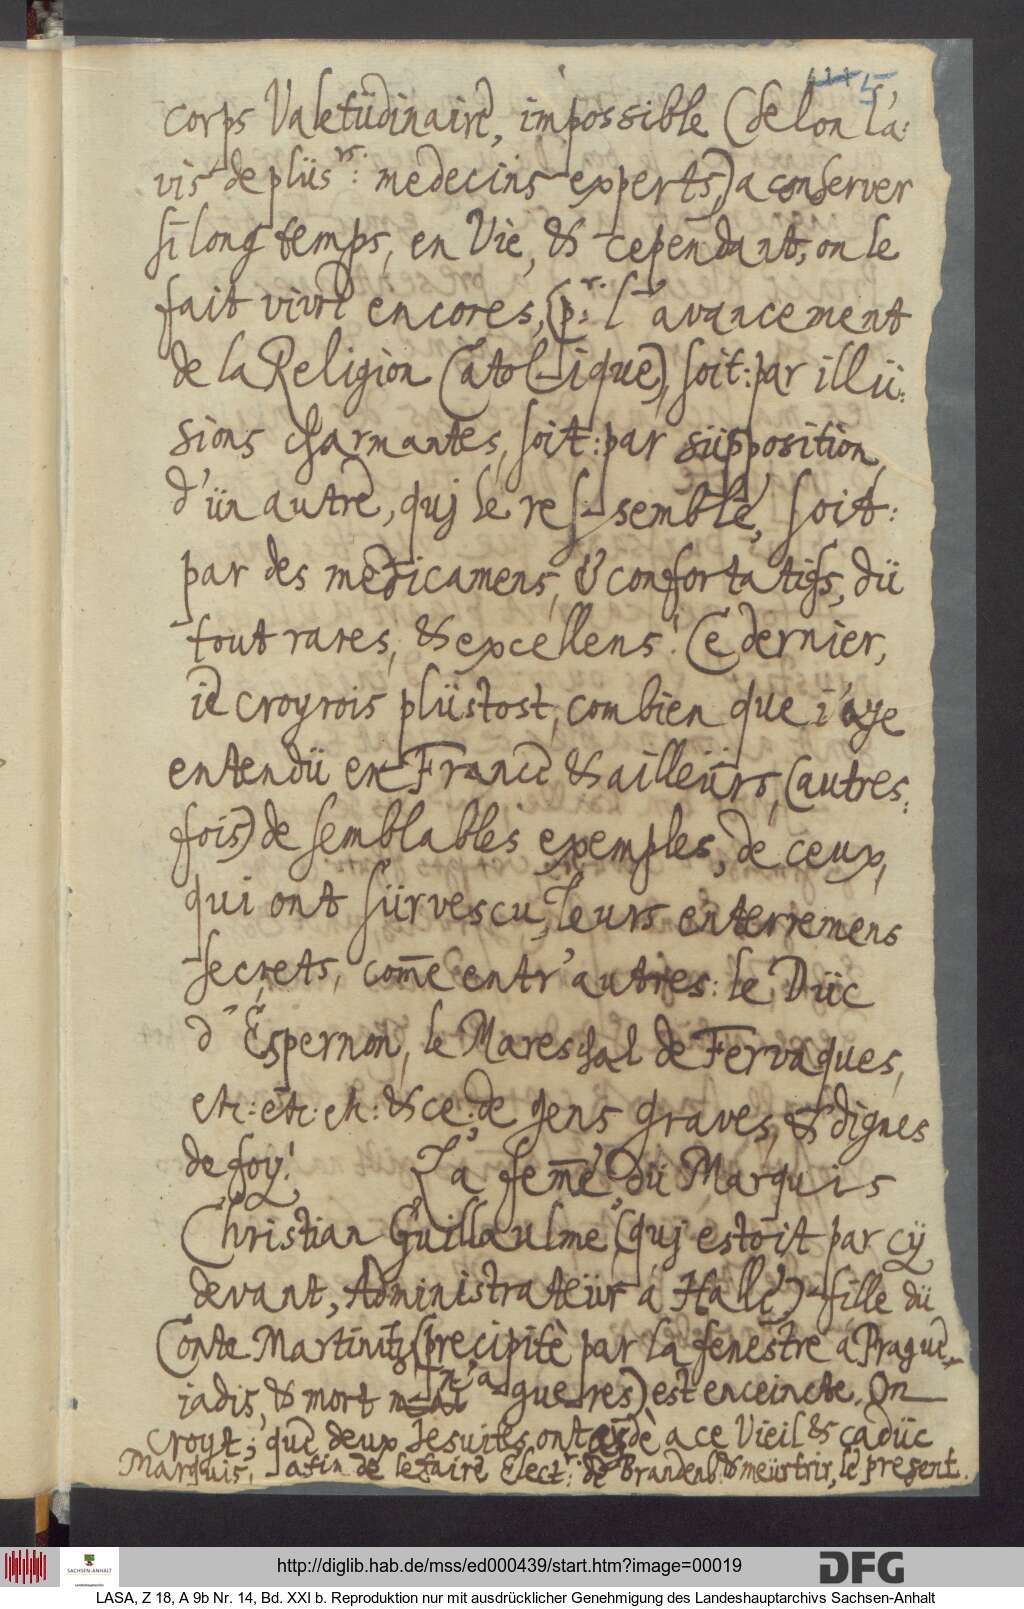 corps Valetüdinaire, impossible (selon l'a:
vis de plüs.rs: medecins experts,) a conserver
si long temps, en Vie, & cependant, on le
fait vivre encores, (p.r: l'avancement
de la Religion Catolique) soit: par illü:
sions charmantes, soit: par süpposition,
d'ün autre, quj le res-semble, soit:
par des medicamens, & confortatifs, dü
tout rares, & excellens! Ce dernier,
ie croyrois plüstost, combien que i'aye
entendü en France & ailleürs, (autres:
fois) de semblables exemples, de ceux,
qui ont sürvescu, leurs enterremens
secrets, com̄e entr'autres: le Düc
d'Espernon, le Mareschal de Fervaques,
etc: etc: etc: & ce: de gens graves, & dignes
de foy! La fem̄e dü Marquis
Christian Guillaulme (quj estoit par cy
devant, Administrateür a Halle,) fille dü
Conte Martinitz (precipitè par la fenestre a Prague,
jadis, & mort n'a gueres) est enceincte. On
croyt, que deux Jesuites ont aydè a ce Vieil & cadüc
Marquis, afin de le faire Elect.r: de Brandenb: & meürtrir, le present.
115
http://diglib.hab.de/mss/ed000439/start.htm?image=00019
SACHSEN-ANHALT
DFG
LASA, Z 18, A 9b Nr. 14, Bd. XXI b. Reproduktion nur mit ausdrücklicher Genehmigung des Landeshauptarchivs Sachsen-Anhalt